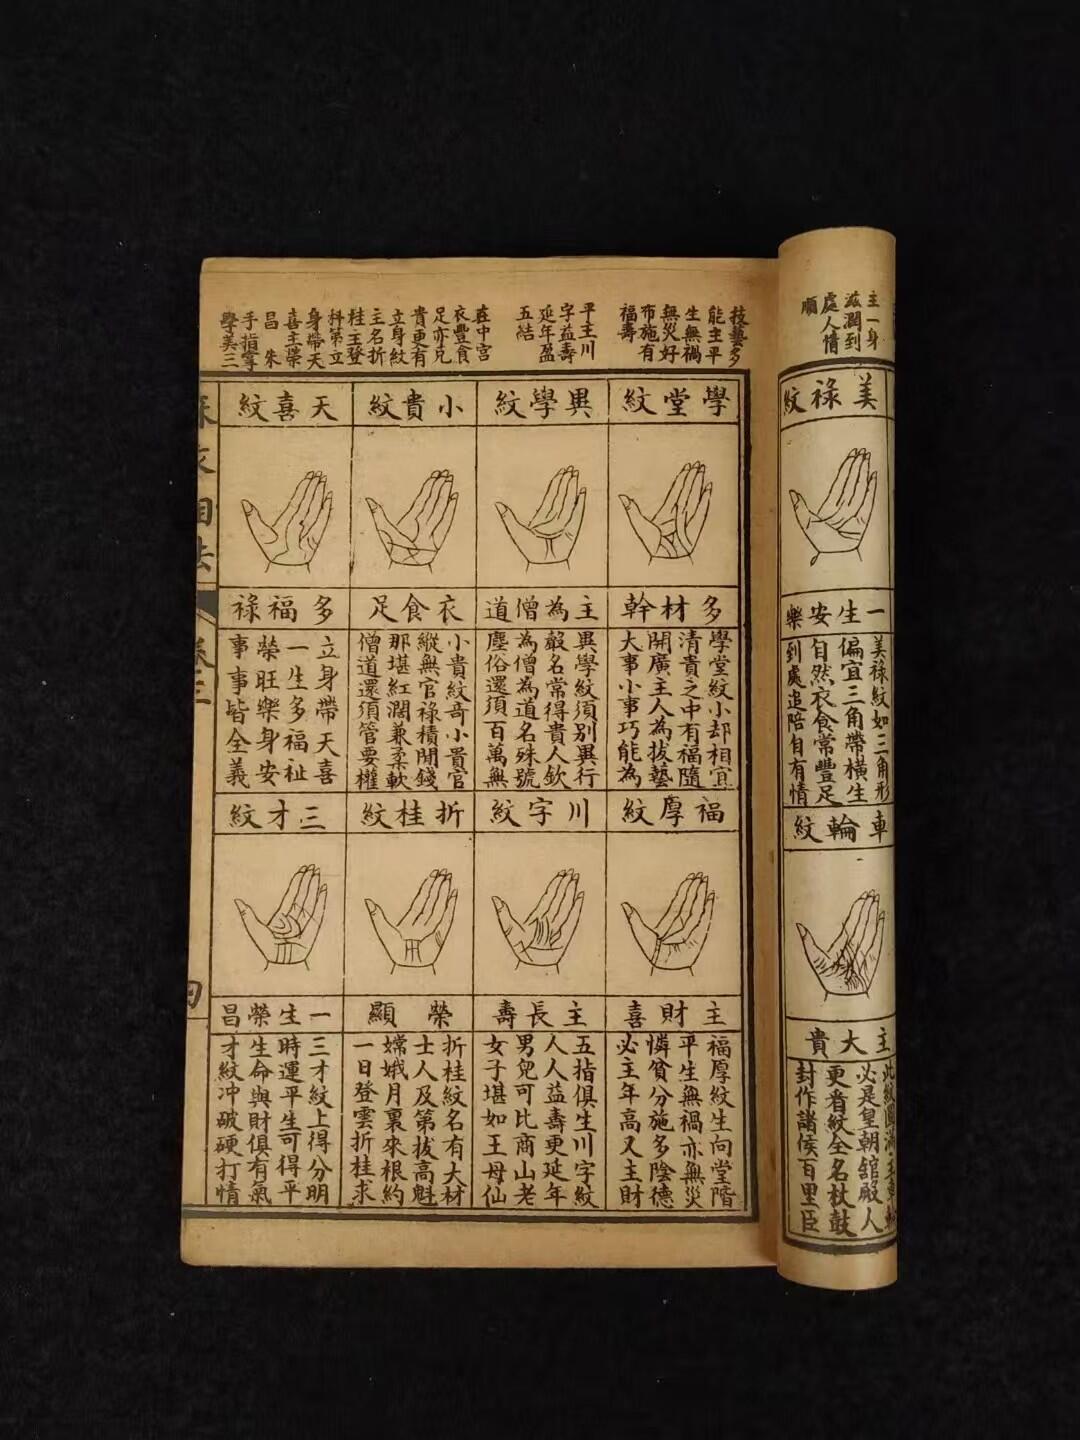 主一身
滋潤到
處人情
順
美祿紋
一生安樂
美祿紋如三角形
偏宜三角帶橫生
自然衣食常豐足
到處追陪自有情
車輪紋
主大貴
必是皇朝舘殿人
更看紋全名杖鼓
封作諸侯百里臣
技藝多
能主平
生無禍
無災好
布施有
福壽
平主川
字益壽
延年盈
五結
在中宮
衣豐食
足亦兄
貴更有
立身紋
主名折
桂主登
科第立
身帶天
喜主榮
昌 朱
手指掌
學美三
學堂紋
多材幹
學堂紋小却相宜
清貴之中有福隨
開廣主人為拔藝
大事小事巧能為
異學紋
主為僧道
異學紋須別異行
毅名常得貴人欽
為僧為道名殊號
塵俗還須百萬無
小貴紋
衣食足
小貴紋奇小貴官
縱無官祿積閒錢
那堪紅濶兼柔軟
僧道還須管要權
天喜紋
多福祿
立身帶天喜
一生多福祉
榮旺樂身安
事事皆全義
福厚紋
主財喜
福厚紋生向堂階
平生無禍亦無災
憐貧分施多陰德
必主年高又主財
川字紋
主長壽
五指俱生川字紋
人人益壽更延年
男兒可比商山老
女子堪如王母仙
折桂紋
榮顯
折桂紋名有大材
士人及第拔高魁
嫦娥月裏來根約
一日登雲折桂求
三才紋
一生榮昌
三才紋上得分明
時運平生可得平
生命與財俱有氣
才紋冲破硬打情
衣相法
卷三
四